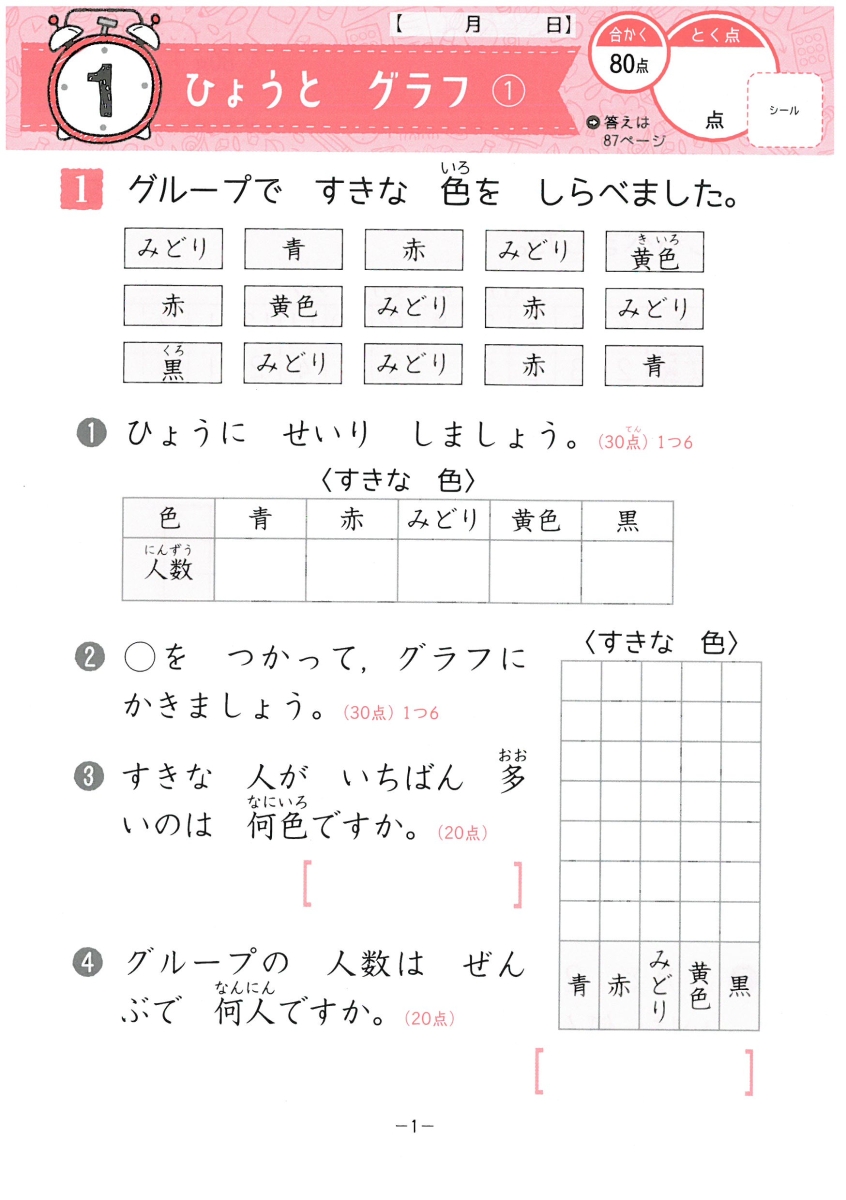 【　月　日】
1 ひょうと　グラフ ①
合かく
80点
とく点
点
答えは
87ページ
シール
いろ
1 グループで　すきな　色を　しらべました。
みどり 青 赤 みどり 黄色
き いろ
赤 黄色 みどり 赤 みどり
くろ
黒 みどり みどり 赤 青
てん
❶ ひょうに　せいり　しましょう。（30点）1つ6
〈すきな　色〉
色 青 赤 みどり 黄色 黒
にんずう
人数
❷ ○を　つかって，グラフに
かきましょう。（30点）1つ6
おお
❸ すきな　人が　いちばん　多
なにいろ
いのは　何色ですか。（20点）
[ ]
❹ グループの　人数は　ぜん
なんにん
ぶで　何人ですか。（20点）
〈すきな　色〉
青 赤 みどり 黄色 黒
[ ]
－1－